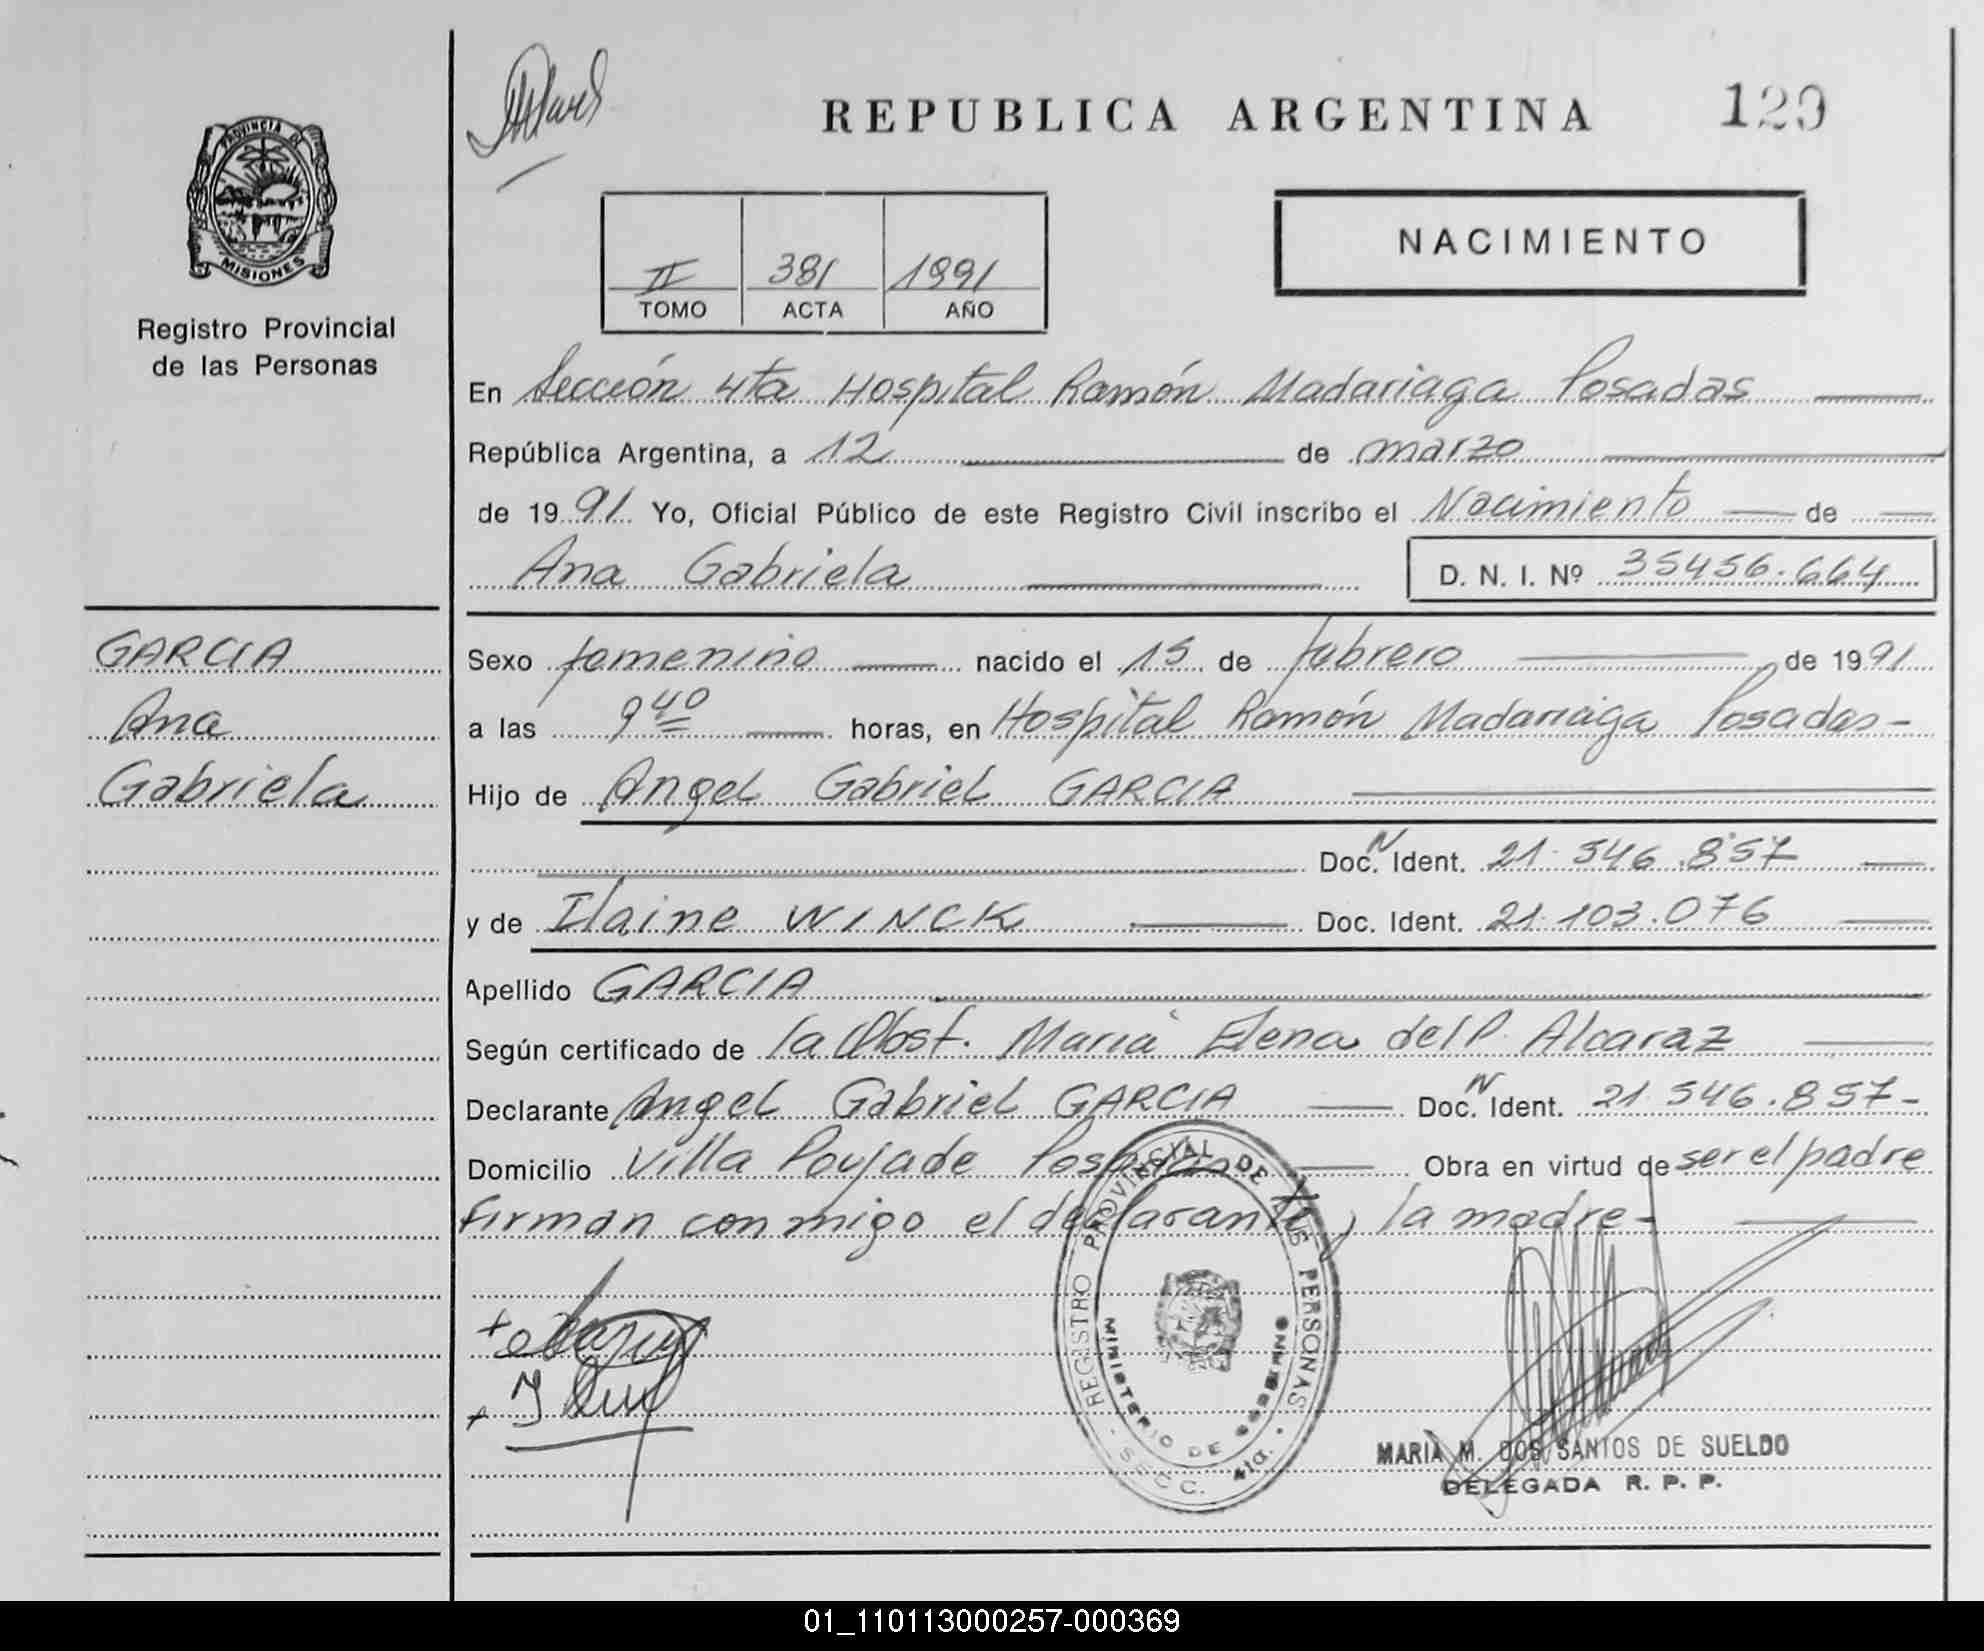 REPUBLICA ARGENTINA 129
PROVINCIA DE
MISIONES
Registro Provincial
de las Personas
NACIMIENTO
II 381 1991
TOMO ACTA AÑO
En Sección 4ta Hospital Ramón Madariaga Posadas
República Argentina, a 12 de marzo
de 1991 Yo, Oficial Público de este Registro Civil inscribo el Nacimiento de
Ana Gabriela D. N. I. Nº 35456.664
GARCIA
Ana
Gabriela
Sexo femenino nacido el 15 de febrero de 1991
a las 9 40 horas, en Hospital Ramón Madariaga Posadas-
Hijo de Angel Gabriel GARCIA
Doc. N Ident. 21.546.857
y de Ilaine WINCK Doc. Ident. 21.103.076
Apellido GARCIA
Según certificado de la Obst. Maria Elena del P. Alcaraz
Declarante Angel Gabriel GARCIA Doc. N Ident. 21.546.857-
Domicilio Villa Poujade Posadas Obra en virtud de ser el padre
firman conmigo el declarante y la madre-
REGISTRO PROVINCIAL DE LAS PERSONAS
MINISTERIO DE GOBIERNO
SECC. 4ta.
MARIA M. DOS SANTOS DE SUELDO
DELEGADA R. P. P.
01_110113000257-000369